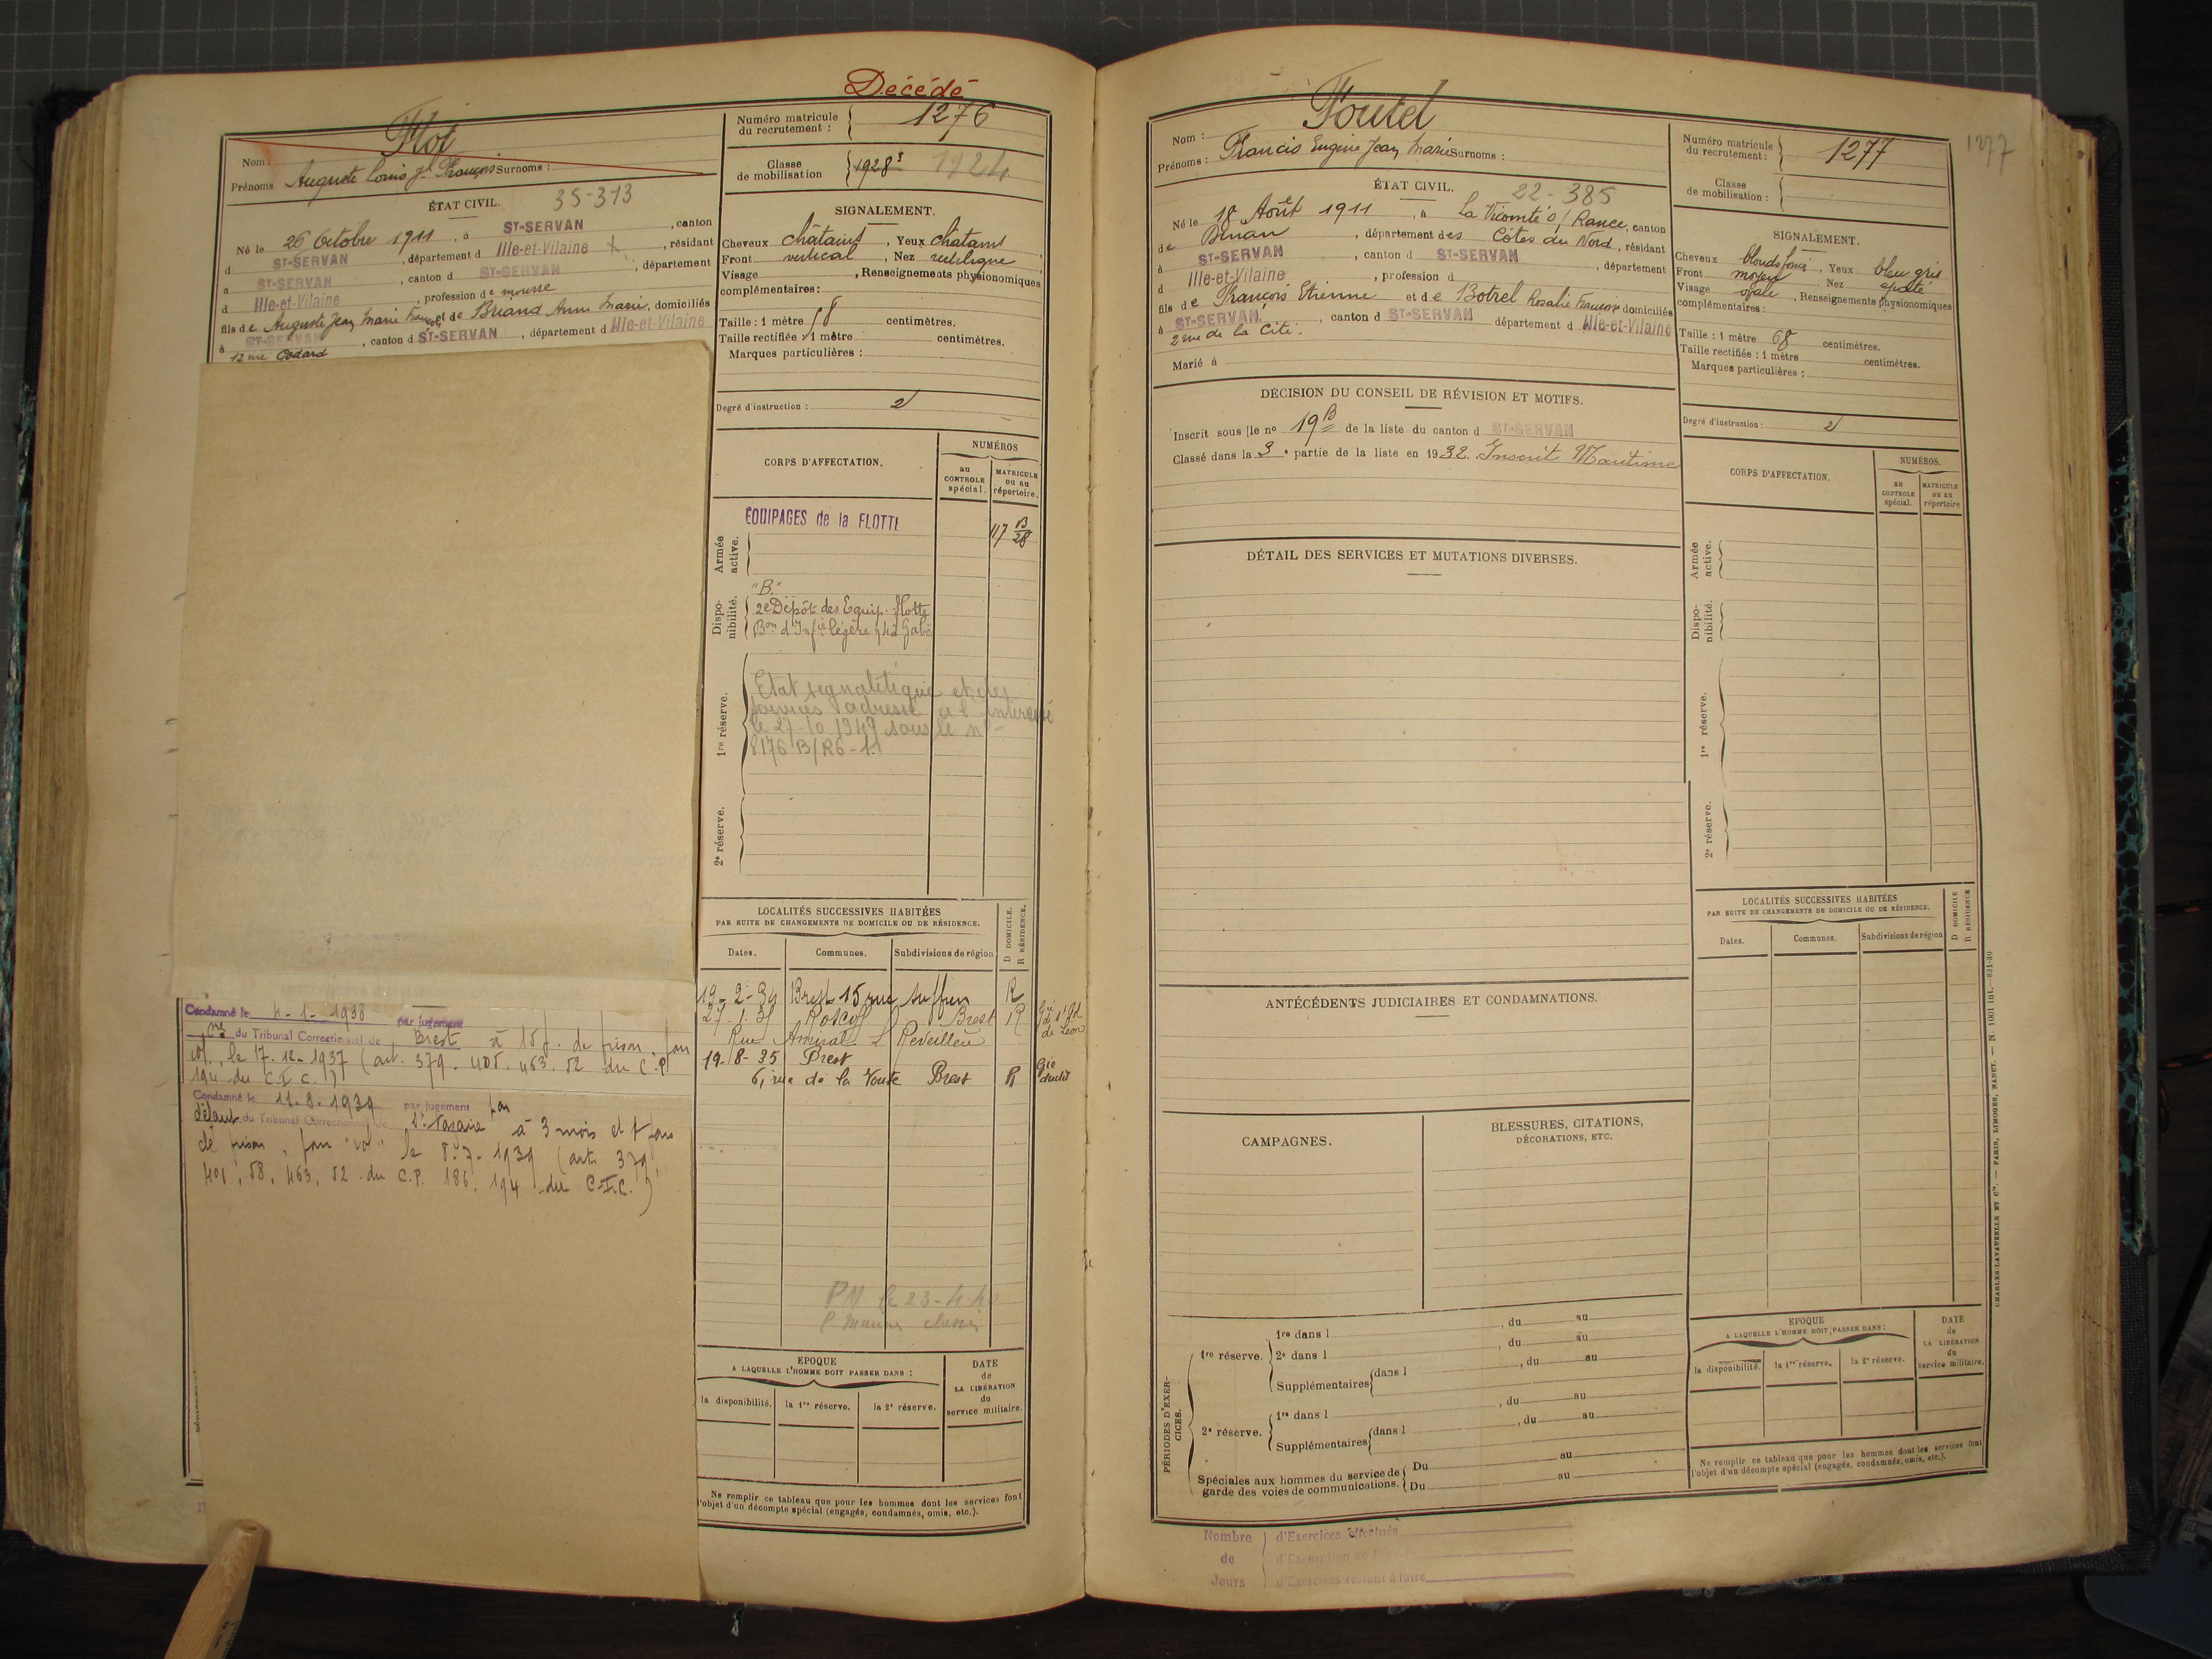 Décédé
Nom : Flot
Prénoms Auguste Louis Jh François Surnoms :
Numéro matricule
du recrutement : 1276
Classe
de mobilisation 1928 1924
ÉTAT CIVIL. 35-313
Né le 26 Octobre 1911, à ST-SERVAN, canton
d ST-SERVAN, département d Ille-et-Vilaine X, résidant
à ST-SERVAN, canton d ST-SERVAN, département
d Ille-et-Vilaine, profession de mousse
fils de Auguste Jean Marie François et de Briand Anne Marie, domiciliés
à ST-SERVAN, canton d ST-SERVAN, département d Ille-et-Vilaine
12 rue Godard
SIGNALEMENT.
Cheveux châtains, Yeux châtains
Front vertical, Nez rectiligne
Visage , Renseignements physionomiques
complémentaires :
Taille : 1 mètre 58 centimètres.
Taille rectifiée : 1 mètre centimètres.
Marques particulières :
Degré d'instruction : 2
CORPS D'AFFECTATION.
NUMÉROS
au
CONTROLE
spécial.
MATRICULE
ou au
répertoire.
Armée
active.
EQUIPAGES de la FLOTTE
117 B/28
Dispo-
nibilité.
"B."
2e Dépôt des Equip. Flotte
Bon d'Infie légère
1re réserve.
Etat signalétique et des
services adressé à l'intéressé
le 27-10 1949 sous le n°
8176 B/R6-11
2e réserve.
LOCALITÉS SUCCESSIVES HABITÉES
PAR SUITE DE CHANGEMENTS DE DOMICILE OU DE RÉSIDENCE.
D DOMICILE.
R RÉSIDENCE.
Dates.
Communes.
Subdivisions de région
19-2-34 Brest 15 rue Suffren R
27-1-35 Roscoff Brest R
Rue Amiral Réveillère
19-8-35 Brest
6, rue de la Voute Brest R
PM le 23-4-40
EPOQUE
A LAQUELLE L'HOMME DOIT PASSER DANS :
la disponibilité.
la 1re réserve.
la 2e réserve.
DATE
de
LA LIBÉRATION
du
service militaire.
Ne remplir ce tableau que pour les hommes dont les services font
l'objet d'un décompte spécial (engagés, condamnés, omis, etc.).
Condamné le 4-1-1938 par jugement
du Tribunal Correctionnel de Brest à 15 j. de prison, pour
vol, le 17.12.1937 (art. 379. 401. 463. 52 du C.P.
194 du C.I.C.)
Condamné le 11.8.1939 par jugement par
défaut du Tribunal Correctionnel de St Nazaire à 3 mois et 1 jour
de prison, pour "vol" le 8.7.1939 (art. 379,
401, 58, 463, 52 du C.P. 186, 194 du C.I.C.)
Nom : Foutel
Prénoms : Francis Eugène Jean Marie Surnoms :
Numéro matricule
du recrutement : 1277
1277
Classe
de mobilisation :
ÉTAT CIVIL. 22-385
Né le 18 Août 1911, à La Vicomté s/ Rance, canton
de Dinan, département des Côtes du Nord, résidant
à ST-SERVAN, canton d ST-SERVAN, département
d Ille-et-Vilaine, profession d
fils de François Etienne et de Botrel Rosalie Françoise domiciliés
à ST-SERVAN, canton d ST-SERVAN département d Ille-et-Vilaine
2 rue de la Cité.
Marié à
SIGNALEMENT.
Cheveux blonds foncé, Yeux bleu gris
Front moyen, Nez épaté
Visage ovale, Renseignements physionomiques
complémentaires :
Taille : 1 mètre 68 centimètres.
Taille rectifiée : 1 mètre centimètres.
Marques particulières :
Degré d'instruction : 2
DÉCISION DU CONSEIL DE RÉVISION ET MOTIFS.
Inscrit sous le no 19B de la liste du canton d ST-SERVAN
Classé dans la 3e partie de la liste en 1932. Inscrit Maritime
DÉTAIL DES SERVICES ET MUTATIONS DIVERSES.
CORPS D'AFFECTATION.
NUMÉROS.
au
CONTROLE
spécial.
MATRICULE
ou au
répertoire
Armée
active.
Dispo-
nibilité.
1re réserve.
2e réserve.
ANTÉCÉDENTS JUDICIAIRES ET CONDAMNATIONS.
CAMPAGNES.
BLESSURES, CITATIONS,
DÉCORATIONS, ETC.
LOCALITÉS SUCCESSIVES HABITÉES
PAR SUITE DE CHANGEMENTS DE DOMICILE OU DE RÉSIDENCE.
D DOMICILE
R RÉSIDENCE
Dates.
Communes.
Subdivisions de région
PÉRIODES D'EXER-
CICES.
1re réserve.
1re dans l , du au
2e dans l , du au
Supplémentaires dans l , du au
, du au
2e réserve.
1re dans l , du au
Supplémentaires dans l
Spéciales aux hommes du service de
garde des voies de communications.
Du au
Du au
EPOQUE
A LAQUELLE L'HOMME DOIT PASSER DANS :
la disponibilité.
la 1re réserve.
la 2e réserve.
DATE
de
LA LIBÉRATION
du
service militaire.
Ne remplir ce tableau que pour les hommes dont les services font
l'objet d'un décompte spécial (engagés, condamnés, omis, etc.).
CHARLES-LAVAUZELLE ET Cie. — PARIS, LIMOGES, NANCY. — N. 1001 int.—831-30
Nombre
de
Jours
d'Exercices effectués
d'Exemption de
d'Exercices restant à faire